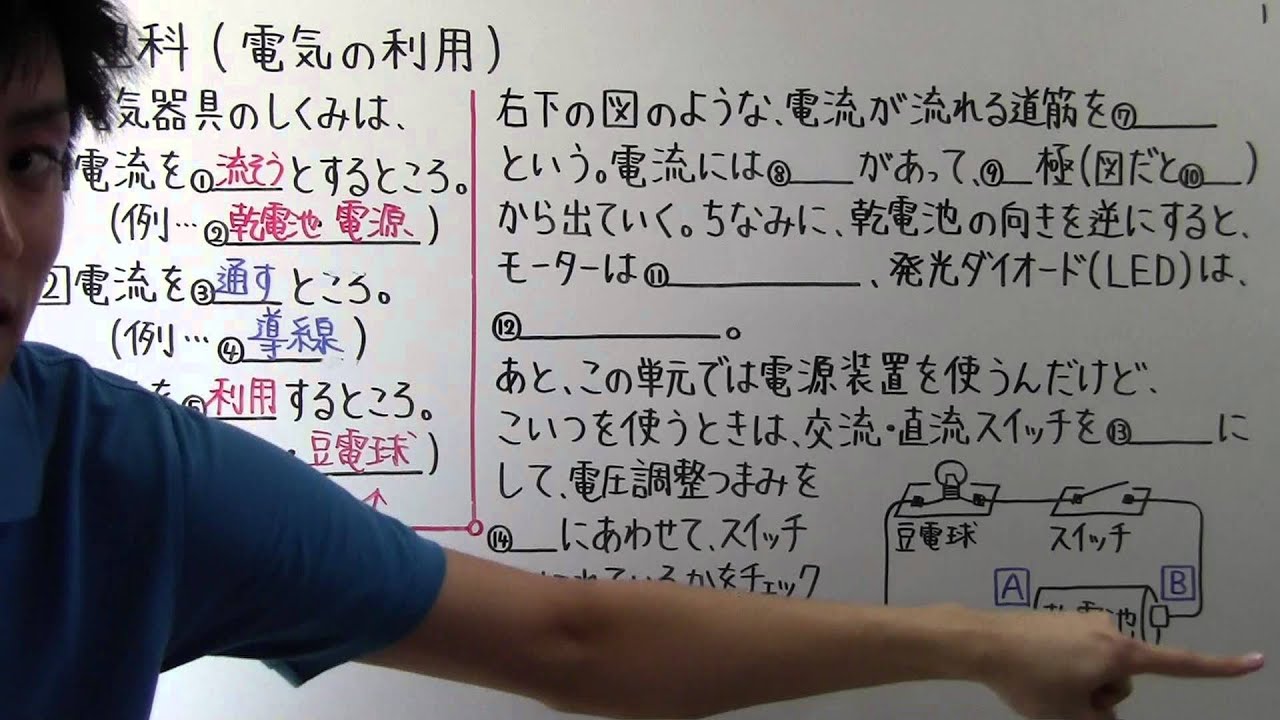 理科（電気の利用）
気器具のしくみは、
電流を①流そうとするところ。
(例…②乾電池・電源、)
2 電流を③通すところ。
(例…④導線)
を⑤利用するところ。
豆電球)
1
右下の図のような、電流が流れる道筋を⑦____
という。電流には⑧____があって、⑨__極(図だと⑩__)
から出ていく。ちなみに、乾電池の向きを逆にすると、
モーターは⑪________、発光ダイオード(LED)は、
⑫________。
あと、この単元では電源装置を使うんだけど、
こいつを使うときは、交流・直流スイッチを⑬____に
して、電圧調整つまみを
⑭__にあわせて、スイッチ
れているかをチェック
豆電球
スイッチ
A
B